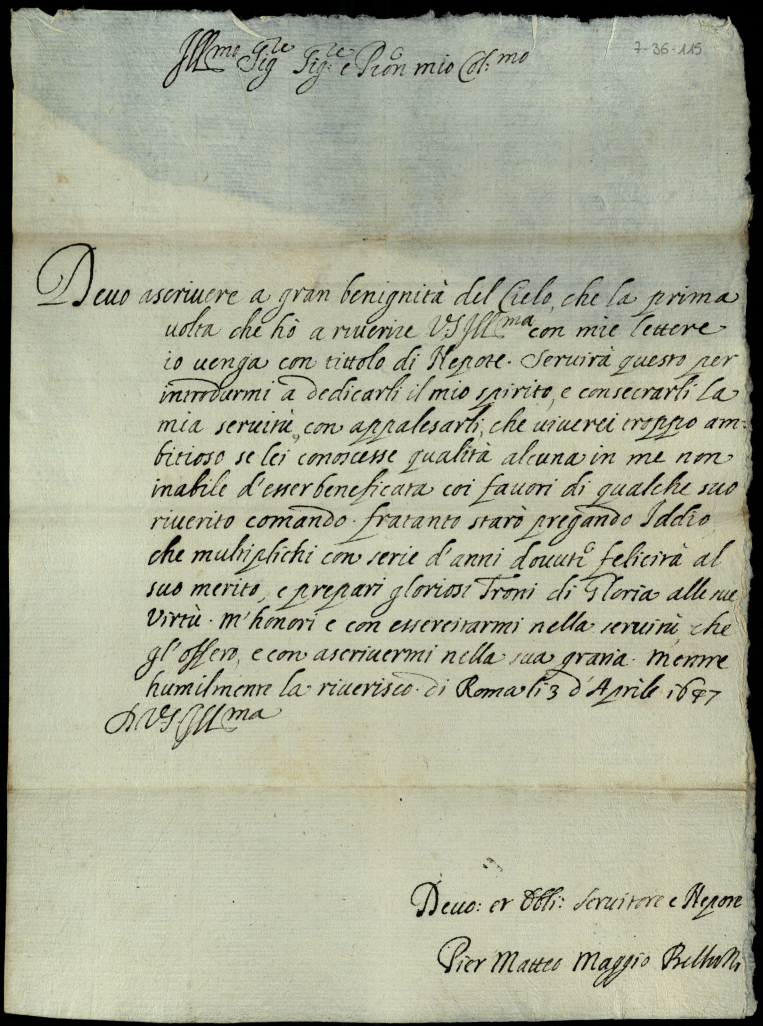 7-36-115
Ill.mo Sig.re Sig.re e Pron mio Col:mo
Devo ascrivere a gran benignità del Cielo, che la prima
volta che hò a riverire VS Ill.ma con mie lettere
io venga con tittolo di Nepote. Servirà questo per
introdurmi a dedicarli il mio spirito, e consecrarli la
mia servitù, con appalesarli, che viverei troppo am:
bitioso se lei conoscesse qualità alcuna in me non
inabile d'esser beneficata coi favori di qualche suo
riverito comando. fratanto starò pregando Iddio
che multiplichi con serie d'anni dovuti felicità al
suo merito, e prepari gloriosi Troni di Gloria alle sue
Virtù. m'honori e con essercitarmi nella servitù, che
gl'offero, e con ascrivermi nella sua gratia. Mentre
humilmente la riverisco. di Roma li 3 d'Aprile 1647
Di VS Ill.ma
Devo: et Obli: Servitore e Nepote
Pier Matteo Maggio